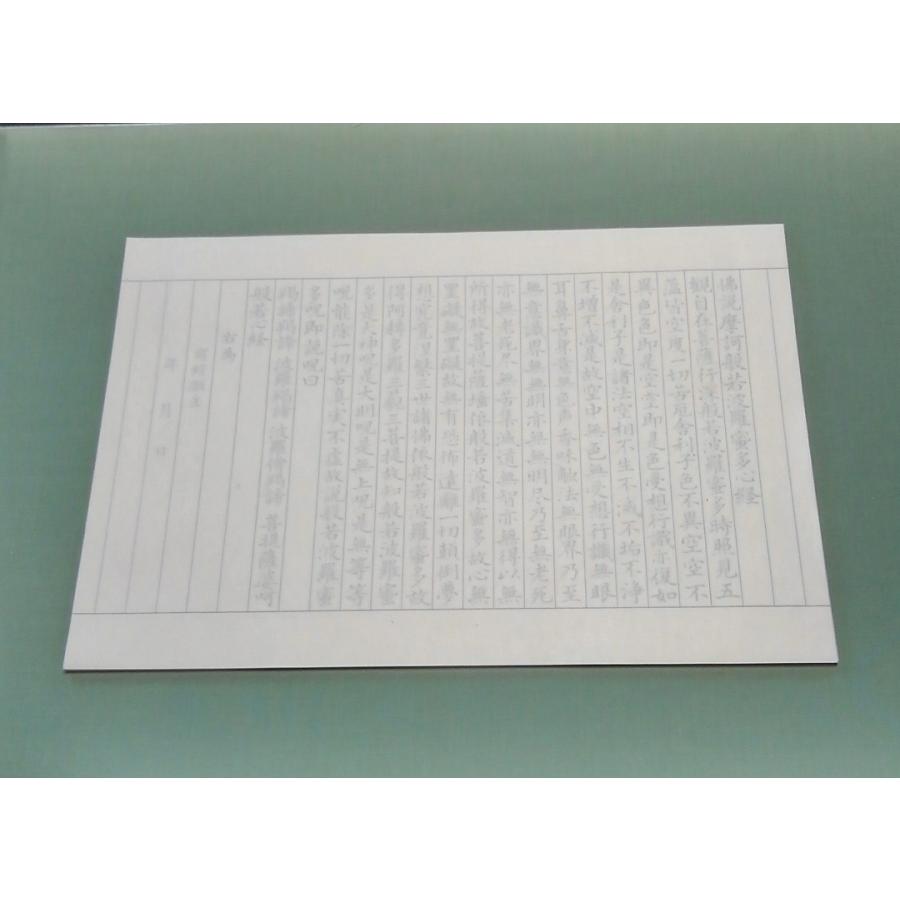 佛説摩訶般若波羅蜜多心経
観自在菩薩行深般若波羅蜜多時照見五
蘊皆空度一切苦厄舎利子色不異空空不
異色色即是空空即是色受想行識亦復如
是舎利子是諸法空相不生不滅不垢不浄
不増不減是故空中無色無受想行識無眼
耳鼻舌身意無色声香味触法無眼界乃至
無意識界無無明亦無無明尽乃至無老死
亦無老死尽無苦集滅道無智亦無得以無
所得故菩提薩埵依般若波羅蜜多故心無
罣礙無罣礙故無有恐怖遠離一切顛倒夢
想究竟涅槃三世諸佛依般若波羅蜜多故
得阿耨多羅三藐三菩提故知般若波羅蜜
多是大神呪是大明呪是無上呪是無等等
呪能除一切苦真実不虚故説般若波羅蜜
多呪即説呪曰
羯諦羯諦 波羅羯諦 波羅僧羯諦 菩提薩婆訶
般若心経
右為
年 月 日